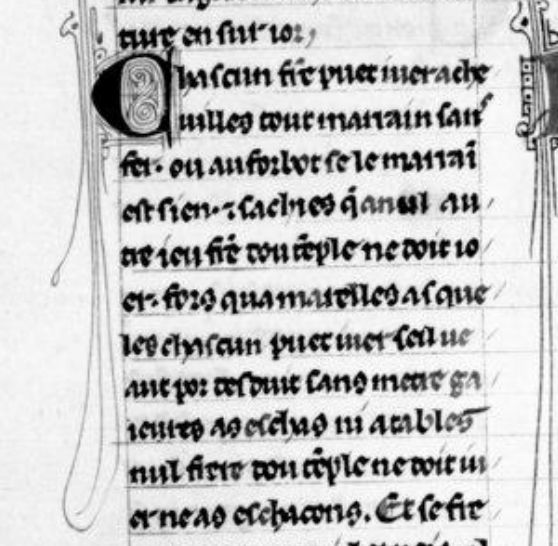 ture en suit ior,
Chascun fr̄e puet iuer a che
uilles tout marrain san˜
fer. ou au forbot se le marraī
est sien. ⁊ sachies q̄ a nul au
tre ieu fr̄e dou tēple ne doit io
er. fors qua marelles as que
les chascun puet iuer se il ue
aut por desduit sans metre ga
ieures as eschas ni a tables
nul frere dou tēple ne doit iu
er ne as eschacons. Et se fre